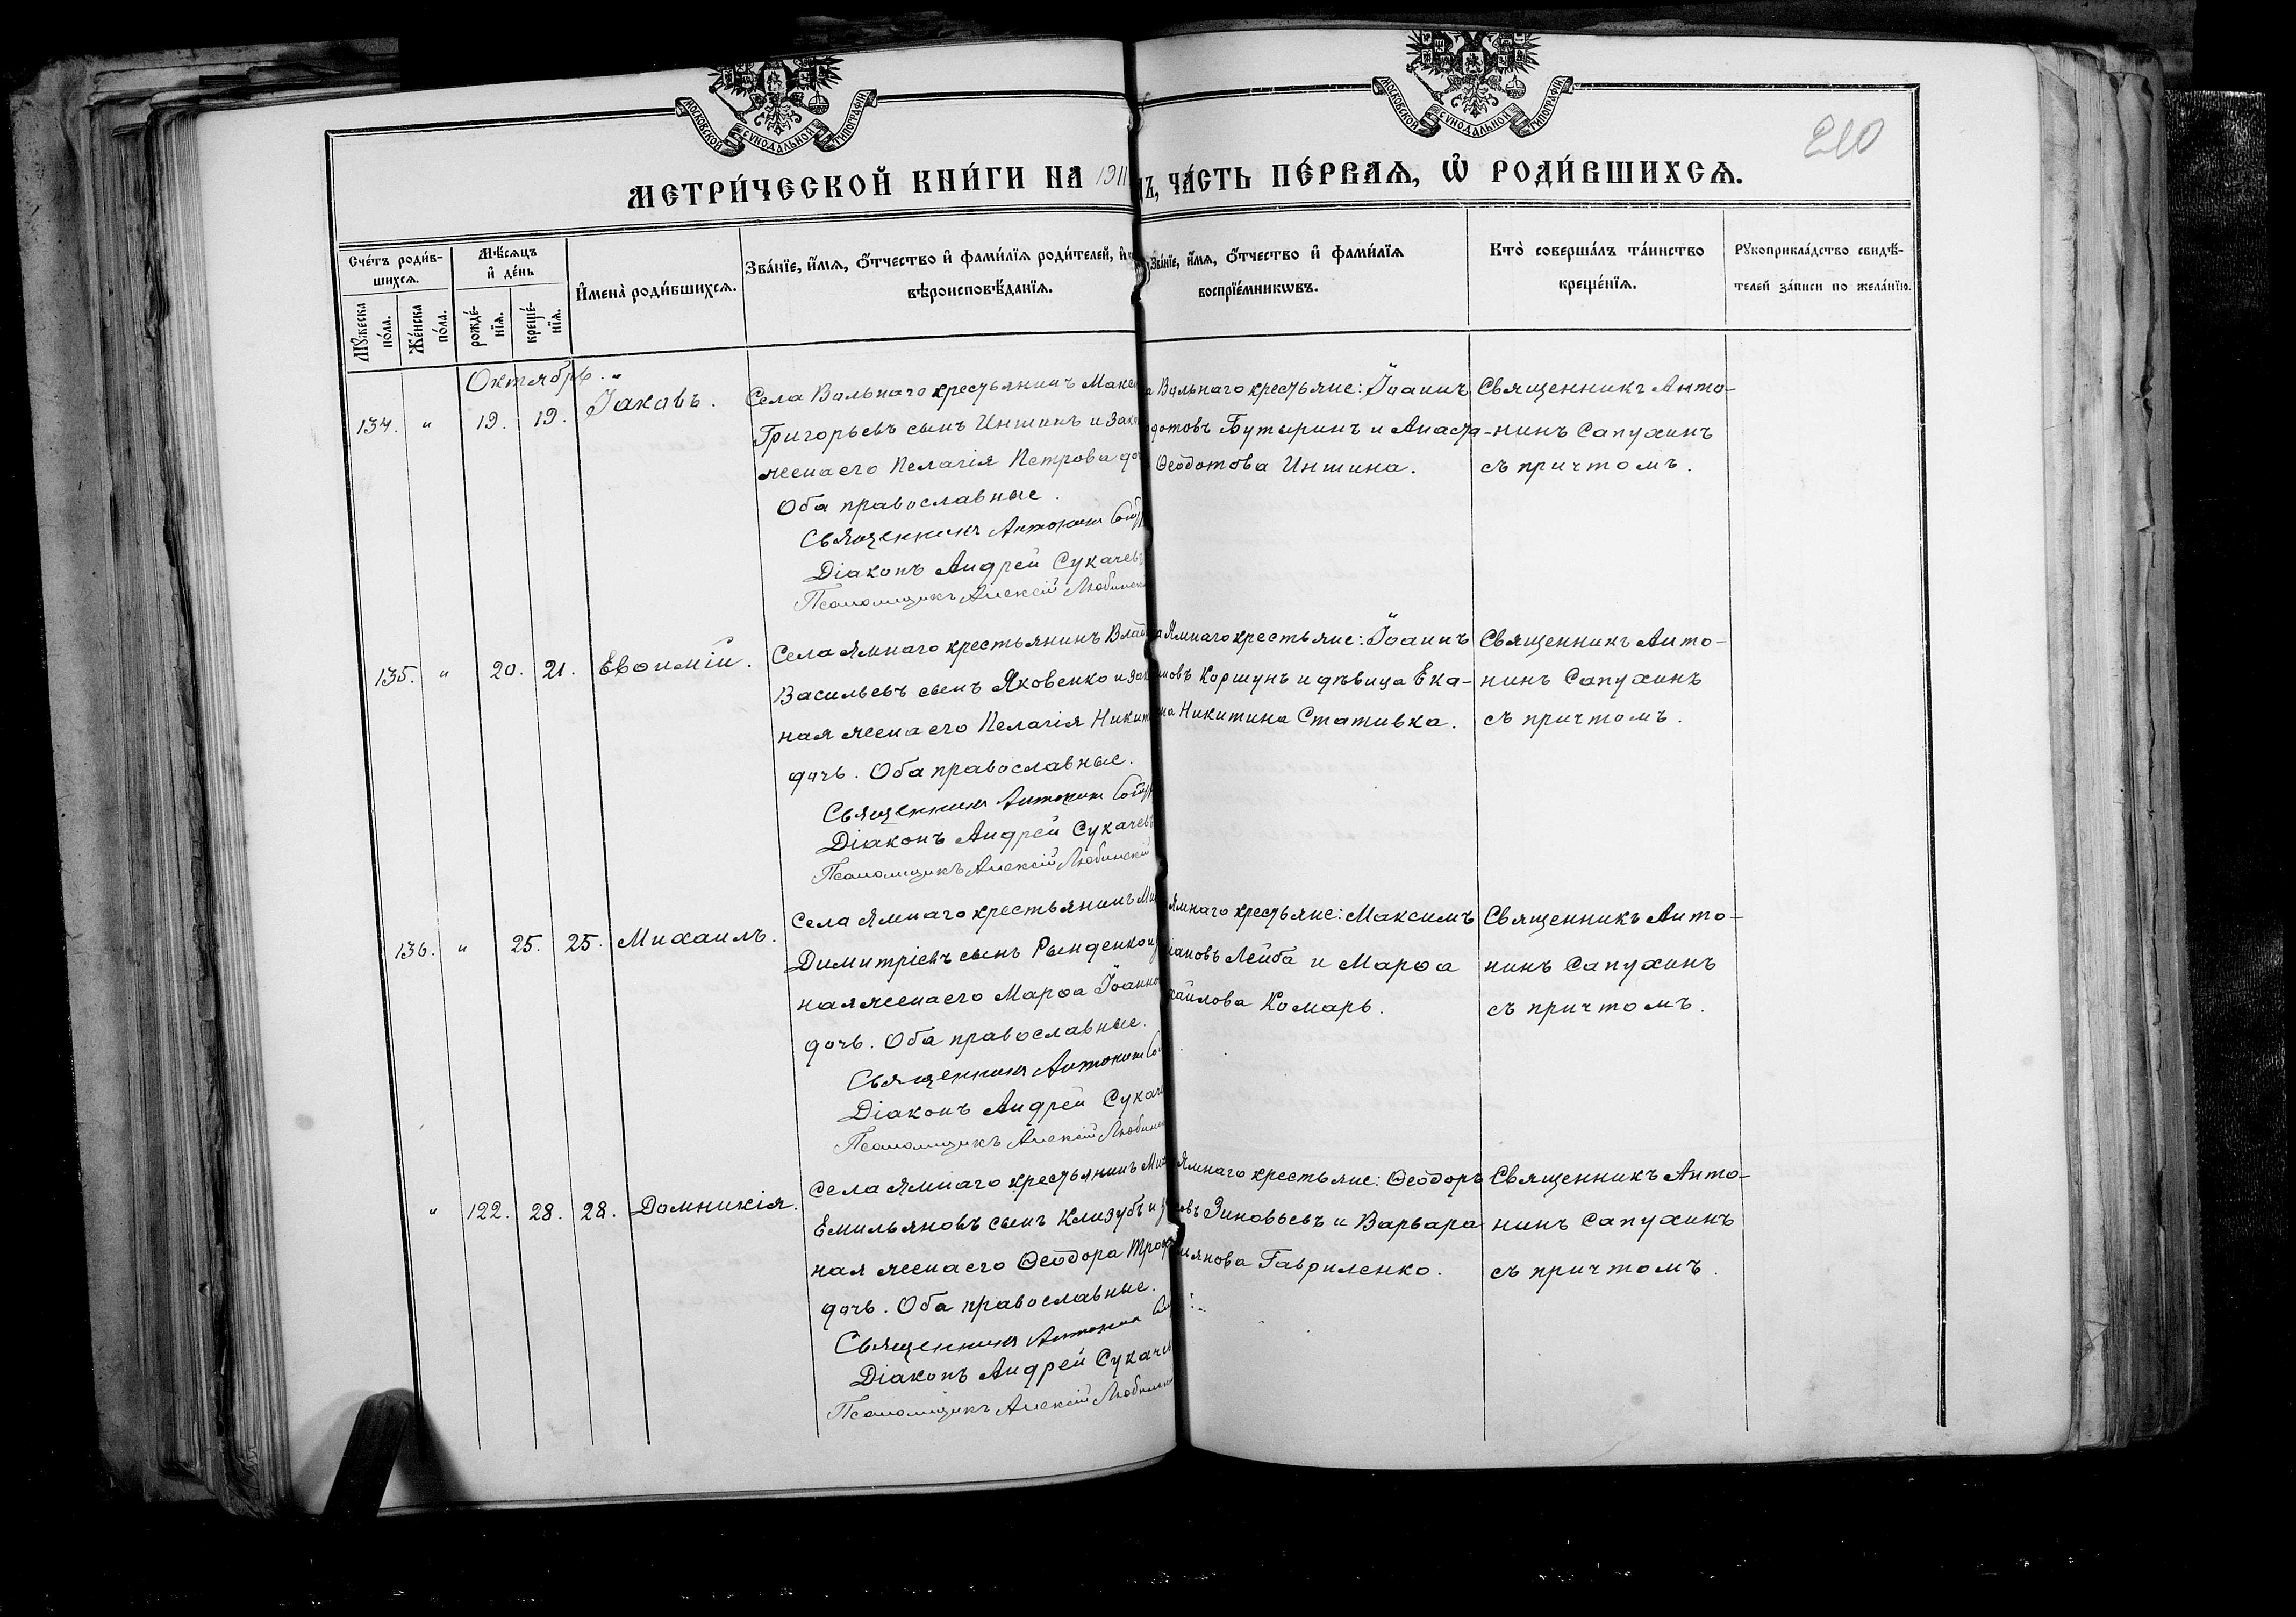 МОСКОВСКОЙ СУНОДАЛЬНОЙ ТИПОГРАФІИ
МОСКОВСКОЙ СУНОДАЛЬНОЙ ТИПОГРАФІИ
210
МЕТРИ́ЧЕСКОЙ КНИ́ГИ НА 1911
ЧА́СТЬ ПЕ́РВАѦ, Ѡ҆ РОДИ́ВШИХСѦ.
Сче́тъ роди́вшихсѧ.
Мꙋ́жеска по́ла.
Же́нска по́ла.
Мѣ́сѧцъ и҆ де́нь
рожде́нїѧ.
креще́нїѧ.
И҆мена̀ роди́вшихсѧ.
Зва́нїе, и҆́мѧ, о҆́тчество и҆ фами́лїѧ роди́телей,
вѣроисповѣ́данїѧ.
Зва́нїе, и҆́мѧ, о҆́тчество и҆ фами́лїѧ
воспрїе́мникѡвъ.
Кто̀ соверша́лъ та́инство
креще́нїѧ.
Рꙋкоприкла́дство свидѣ́-
телей за́писи по жела́нїю.
Октябрь.
134. " 19. 19. Іаковъ.
Села Вольнаго крестьянинъ
Григорьевъ сынъ Иншинъ и
жена его Пелагія Петрова
Оба православные.
Священникъ Антонинъ
Діаконъ Андрей Сукачевъ
Псаломщикъ Алексій
Вольнаго крестьяне: Іоаннъ
Бутыринъ и Анаста-
Ѳеодотова Иншина.
Священникъ Анто-
нинъ Сапухинъ
съ причтомъ.
135. " 20. 21. Евѳимій.
Села Ямнаго крестьянинъ
Васильевъ сынъ Яковенко
ная жена его Пелагія
дочь. Оба православные.
Священникъ Антонинъ
Діаконъ Андрей Сукачевъ
Псаломщикъ Алексій Любинскій
Ямнаго крестьяне: Іоаннъ
Коршунъ и дѣвица Ека-
Никитина Стативка.
Священникъ Анто-
нинъ Сапухинъ
съ причтомъ.
136. " 25. 25. Михаилъ.
Села Ямнаго крестьянинъ
Димитріевъ сынъ Рынденко
ная жена его Марѳа
дочь. Оба православные.
Священникъ Антонинъ
Діаконъ Андрей
Псаломщикъ Алексій
Ямнаго крестьяне: Максимъ
Лейба и Марѳа
Комарь.
Священникъ Анто-
нинъ Сапухинъ
съ причтомъ.
" 122. 28. 28. Домникія.
Села Ямнаго крестьянинъ
Емильяновъ сынъ Клизубъ
ная жена его Ѳеодора
дочь. Оба православные.
Священникъ Антонинъ
Діаконъ Андрей
Псаломщикъ Алексій
Ямнаго крестьяне: Ѳеодоръ
Зиновьевъ и Варвара
Гавриленко.
Священникъ Анто-
нинъ Сапухинъ
съ причтомъ.